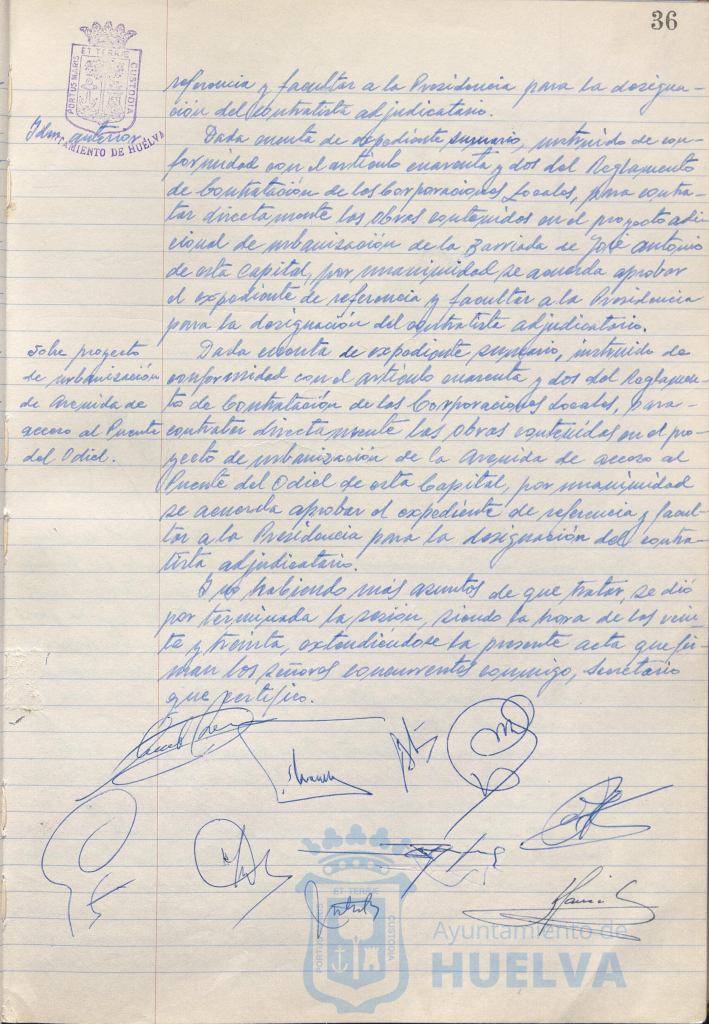 36
PORTUS MARIS ET TERRE CUSTODIA
AYUNTAMIENTO DE HUELVA
referencia y facultar a la Presidencia para la designa-
ción del contratista adjudicatario.
Idem anterior
Dada cuenta de expediente sumario, instruido de con-
formidad con el artículo cuarenta y dos del Reglamento
de Contratación de las Corporaciones Locales, para contra-
tar directamente las obras contenidas en el proyecto adi-
cional de urbanización de la Barriada de José Antonio
de esta Capital, por unanimidad se acuerda aprobar
el expediente de referencia y facultar a la Presidencia
para la designación del contratista adjudicatario.
Sobre proyecto
de urbanización
de Avenida de
acceso al Puente
del Odiel.
Dada cuenta de expediente sumario, instruido de
conformidad con el artículo cuarenta y dos del Reglamen-
to de Contratación de las Corporaciones Locales, para
contratar directamente las obras contenidas en el pro-
yecto de urbanización de la Avenida de acceso al
Puente del Odiel de esta Capital, por unanimidad
se acuerda aprobar el expediente de referencia y facul-
tar a la Presidencia para la designación del contra-
tista adjudicatario.
Y no habiendo más asuntos de que tratar, se dió
por terminada la sesión, siendo la hora de las vein-
te y treinta, extendiéndose la presente acta que fir-
man los señores concurrentes conmigo, Secretario
que certifico.
PORTUS MARIS ET TERRE CUSTODIA
Ayuntamiento de
HUELVA